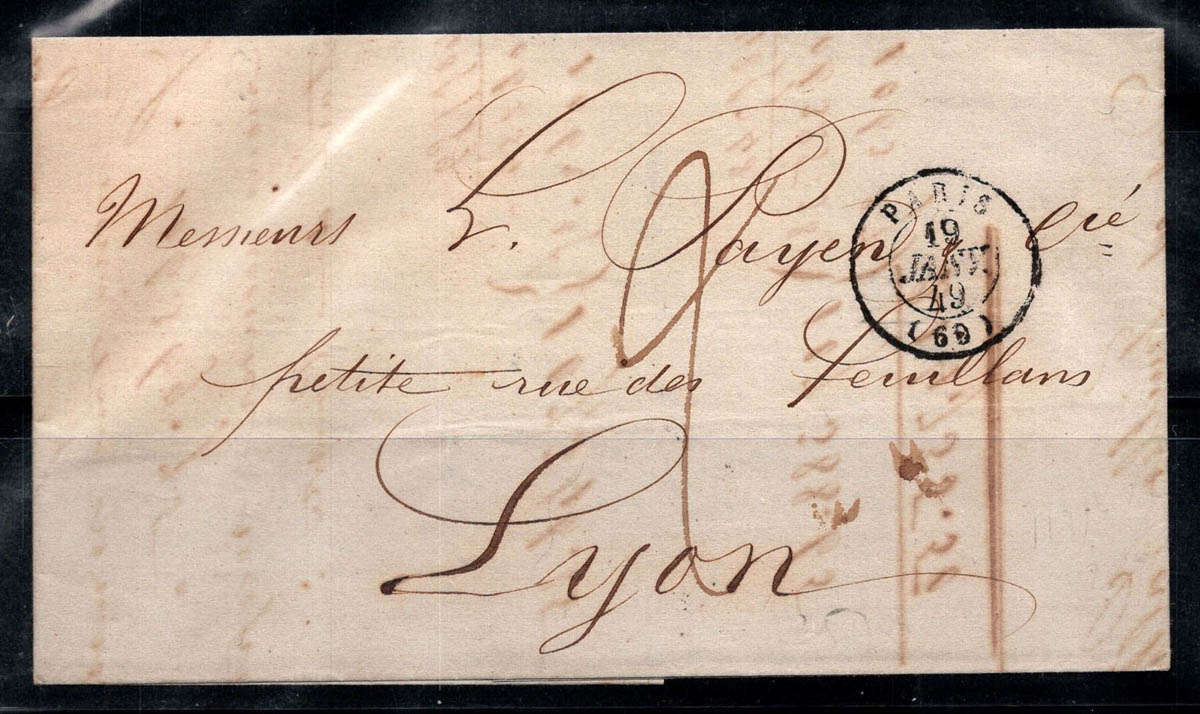 Messieurs L. Payen, Cié
petite rue des feuillans
Lyon
PARIS
19
JANV.
49
(60)
2